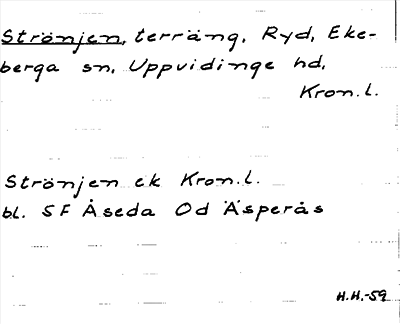 Strönjen, terräng, Ryd, Eke-
berga sn, Uppvidinge hd,
Kron.l.
Strönjen ek Kron.l.
bl. 5F Åseda Od Äsperås
H.H.-59